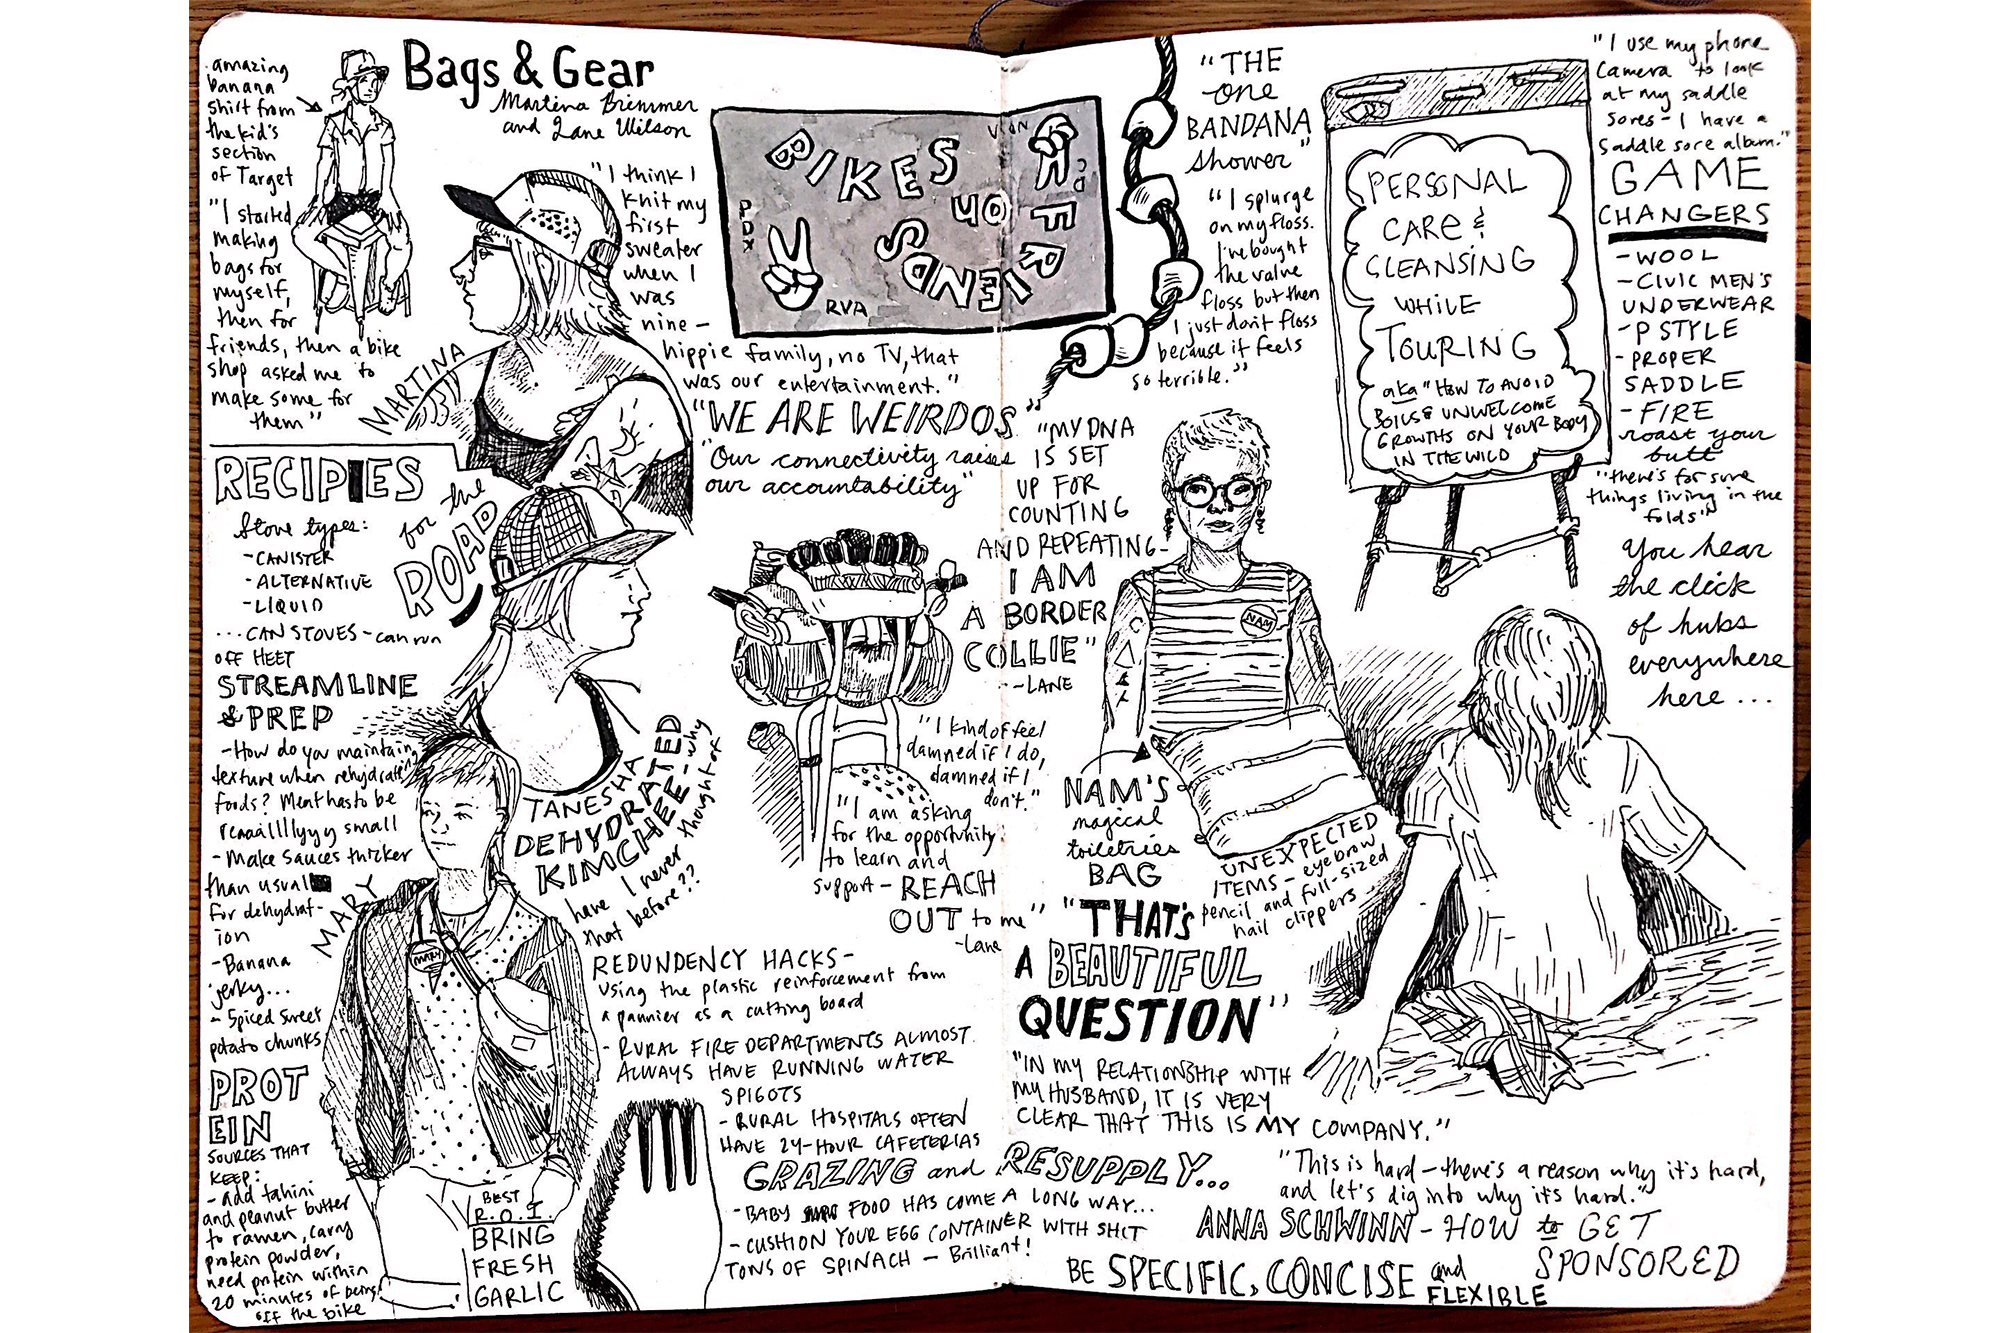 Bags & Gear
Martina Brimmer
and Lane Wilson
amazing
banana
shirt from
the kid's
section
of Target
"I started
making
bags for
myself,
then for
friends, then a bike
shop asked me to
make some for
them"
MARTINA
"I think I
knit my
first
sweater
when I
was
nine –
hippie family, no TV, that
was our entertainment."
BIKES
UNO
FRIENDS
PDX
RVA
"WE ARE WEIRDOS"
"Our connectivity raises
our accountability"
RECIPIES
for the
ROAD
Stove types:
- CANISTER
- ALTERNATIVE
- LIQUID
... CAN STOVES - can run
OFF HEET
STREAMLINE
& PREP
- How do you maintain
texture when rehydrating
foods? Meat has to be
reaaallllyyy small
- Make sauces thicker
than usual
for dehydrat-
ion
- Banana
jerky...
- Spiced sweet
potato chunks
PROT
EIN
SOURCES THAT
KEEP:
- add tahini
and peanut butter
to ramen, carry
protein powder,
need protein within
20 minutes of being
off the bike
MARY
MARY
BEST
R.O.I.
BRING
FRESH
GARLIC
TANESHA
DEHYDRATED
KIMCHEE - why
have I never thought of
that before??
"I kind of feel
damned if I do,
damned if I
don't."
"I am asking
for the opportunity
to learn and
support - REACH
OUT to me"
- Lane
REDUNDENCY HACKS -
using the plastic reinforcement from
a pannier as a cutting board
- RURAL FIRE DEPARTMENTS ALMOST
ALWAYS HAVE RUNNING WATER
SPIGOTS
- RURAL HOSPITALS OFTEN
HAVE 24-HOUR CAFETERIAS
GRAZING and RESUPPLY...
- BABY FOOD HAS COME A LONG WAY...
- CUSHION YOUR EGG CONTAINER WITH SHIT
TONS OF SPINACH - Brilliant!
"THE
one
BANDANA
shower"
"I splurge
on my floss.
I've bought
the value
floss but then
I just don't floss
because it feels
so terrible."
"MY DNA
IS SET
UP FOR
COUNTING
AND REPEATING -
I AM
A BORDER
COLLIE"
- LANE
NAM
NAM'S
magical
toiletries
BAG
UNEXPECTED
ITEMS - eyebrow
pencil and full-sized
nail clippers
"THAT'S
A BEAUTIFUL
QUESTION"
"IN MY RELATIONSHIP WITH
MY HUSBAND, IT IS VERY
CLEAR THAT THIS IS MY COMPANY."
PERSONAL
CARE &
CLEANSING
WHILE
TOURING
aka "HOW TO AVOID
BOILS & UNWELCOME
GROWTHS ON YOUR BODY
IN THE WILD
"I use my phone
camera to look
at my saddle
sores - I have a
saddle sore album."
GAME
CHANGERS
- WOOL
- CIVIC MEN'S
UNDERWEAR
- P STYLE
- PROPER
SADDLE
- FIRE
roast your
butt
"there's for sure
things living in the
folds"
You hear
the click
of hubs
everywhere
here ...
"This is hard - there's a reason why it's hard,
and let's dig into why it's hard."
ANNA SCHWINN - HOW to GET
SPONSORED
BE SPECIFIC, CONCISE and
FLEXIBLE